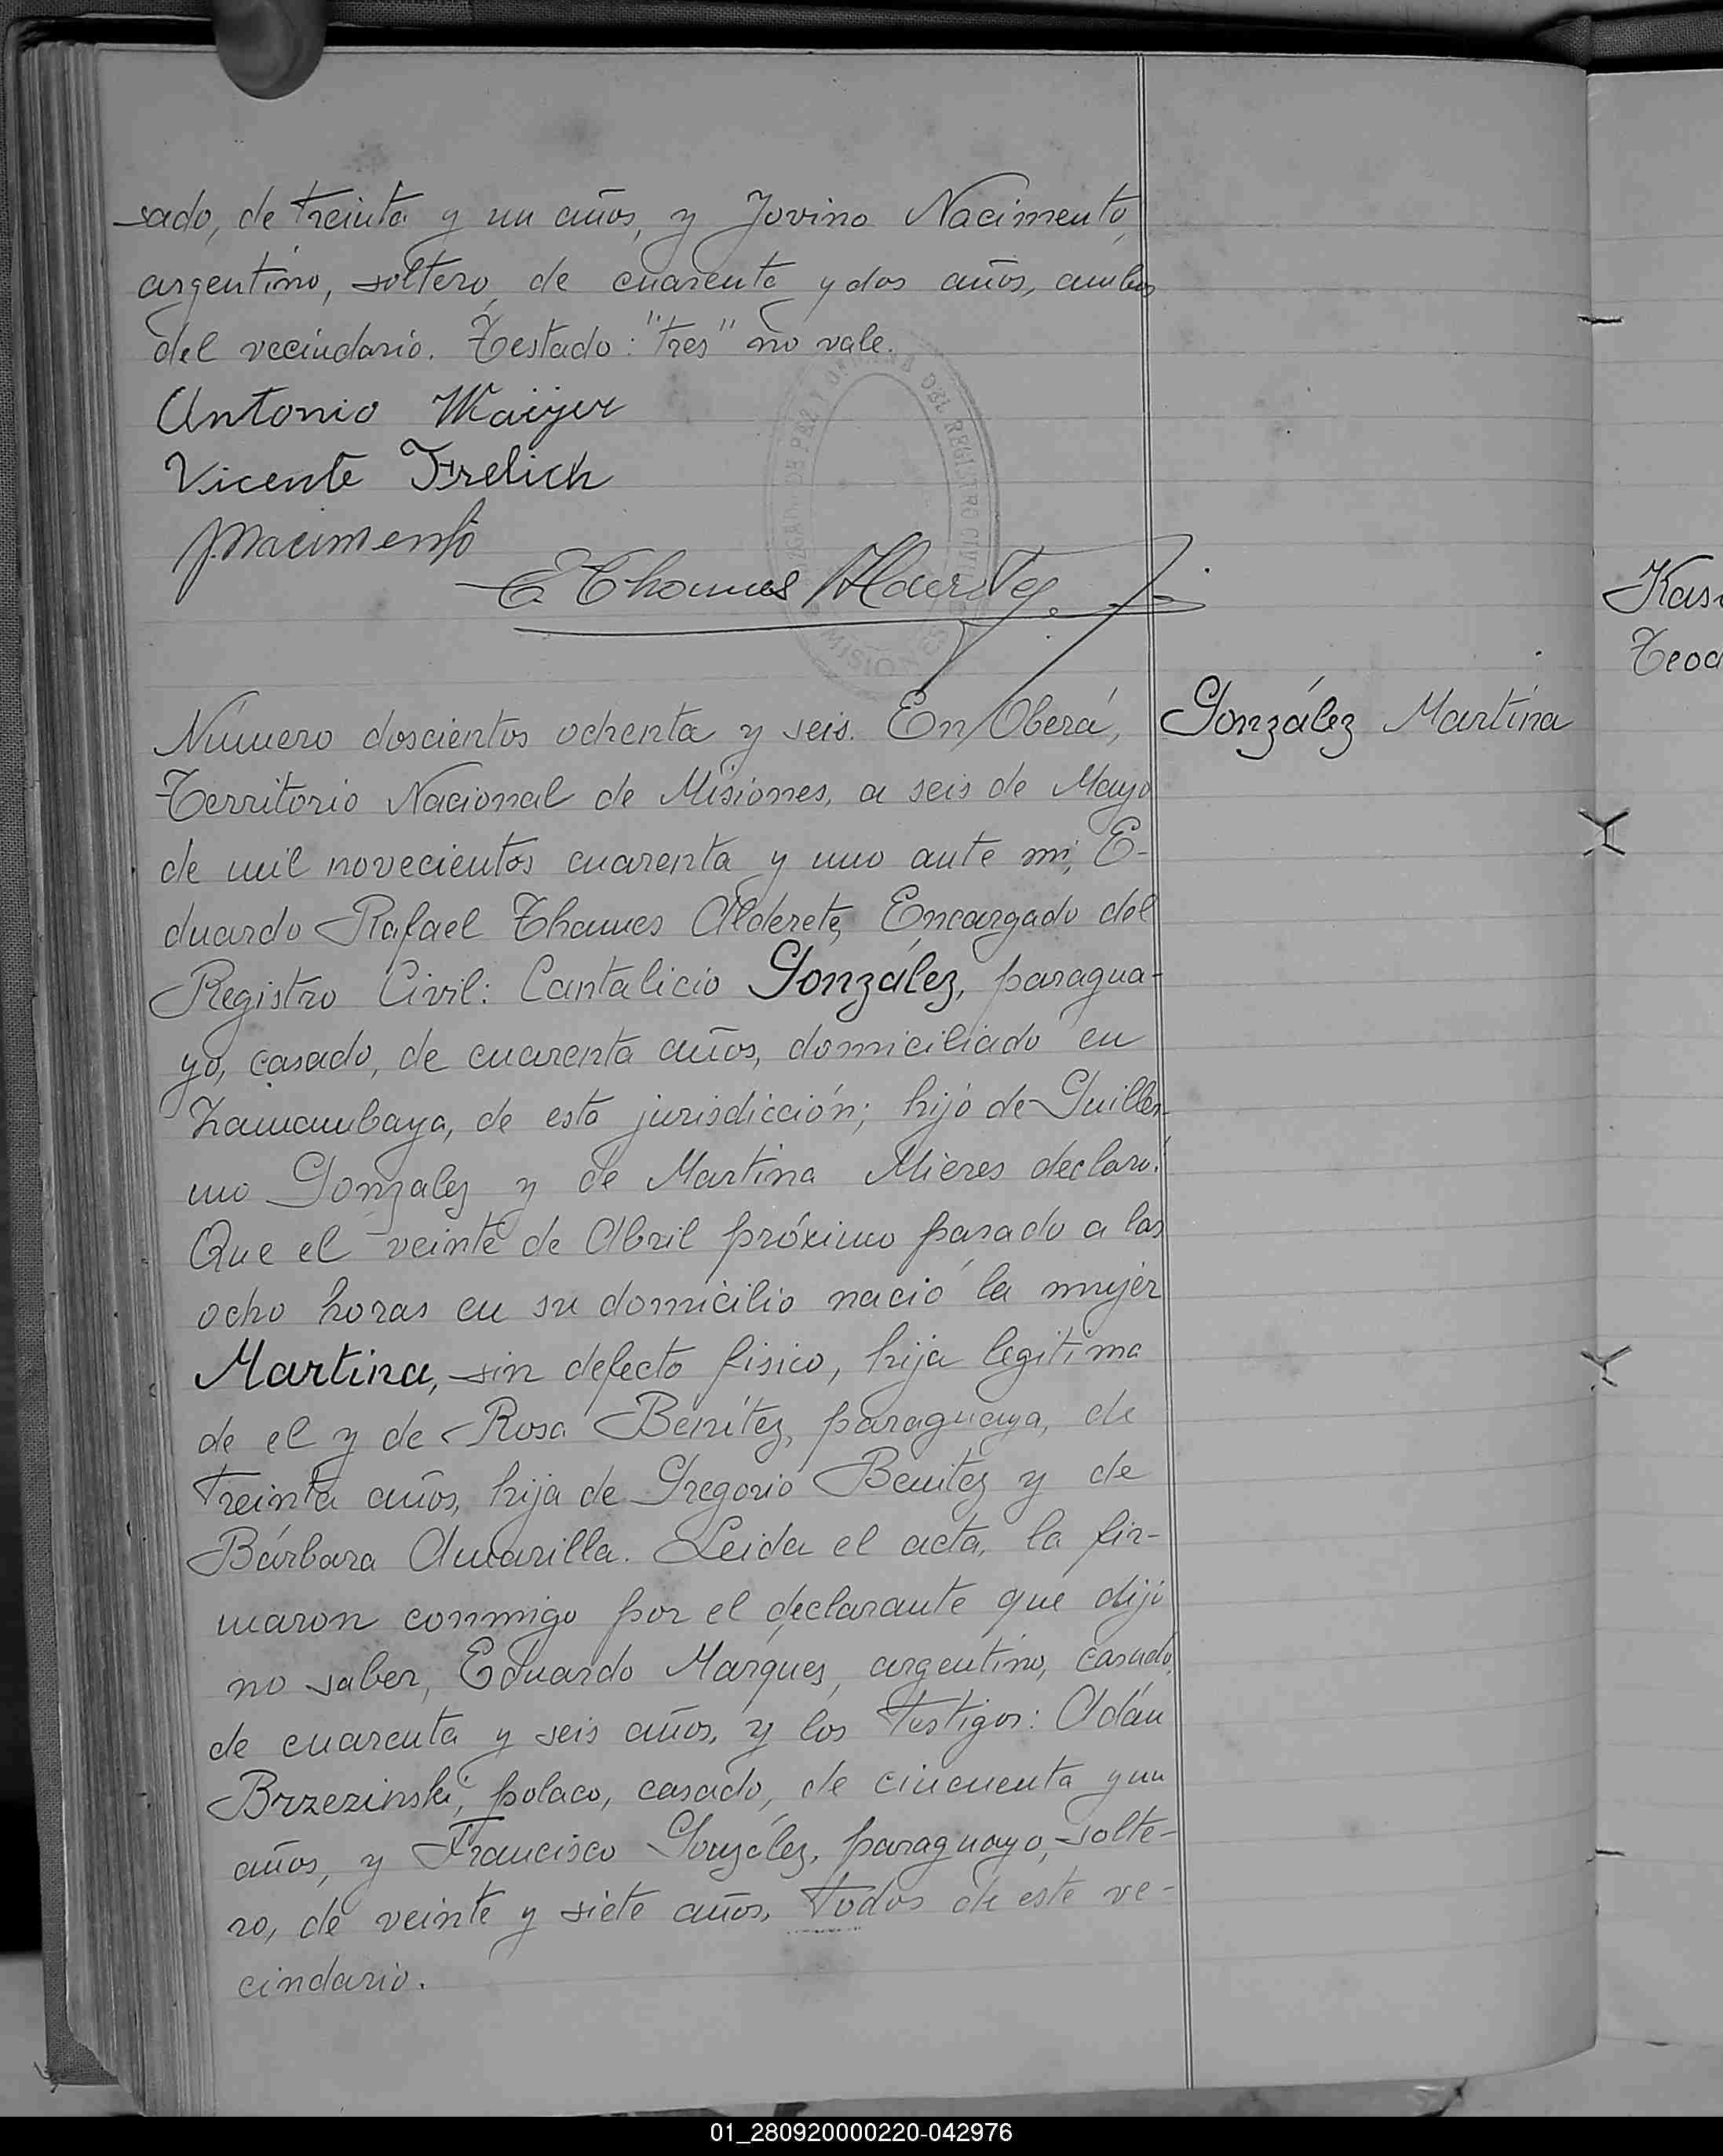 sado, de treinta y un años, y Jovino Nacimento,
argentino, soltero, de cuarenta y dos años, ambos
del vecindario. Testado: "tres" no vale.
Antonio
Vicente Frelich
JNacimento
E Thames Alderete
Número doscientos ochenta y seis. En Oberá,
González Martina
Territorio Nacional de Misiones, a seis de Mayo
de mil novecientos cuarenta y uno ante mi, E-
duardo Rafael Thames Alderete, Encargado del
Registro Civil: Cantalicio González, paragua-
yo, casado, de cuarenta años, domiciliado en
de esta jurisdicción; hijo de Guiller-
mo Gonzalez y de Martina Mieres declaró:
Que el veinte de Abril próximo pasado a las
ocho horas en su domicilio nació la mujer
Martina, sin defecto fisico, hija legitima
de el y de Rosa Benítez, paraguaya, de
treinta años, hija de Gregorio Benitez y de
Bárbara Amarilla. Leida el acta, la fir-
maron conmigo por el declarante que dijo
no saber, Eduardo Márques, argentino, casado,
de cuarenta y seis años, y los testigos: Adán
Brzezinski, polaco, casado, de cincuenta y un
años, y Francisco González, paraguayo, solte-
ro, de veinte y siete años, todos de este ve-
cindario.
Teod
01_280920000220-042976